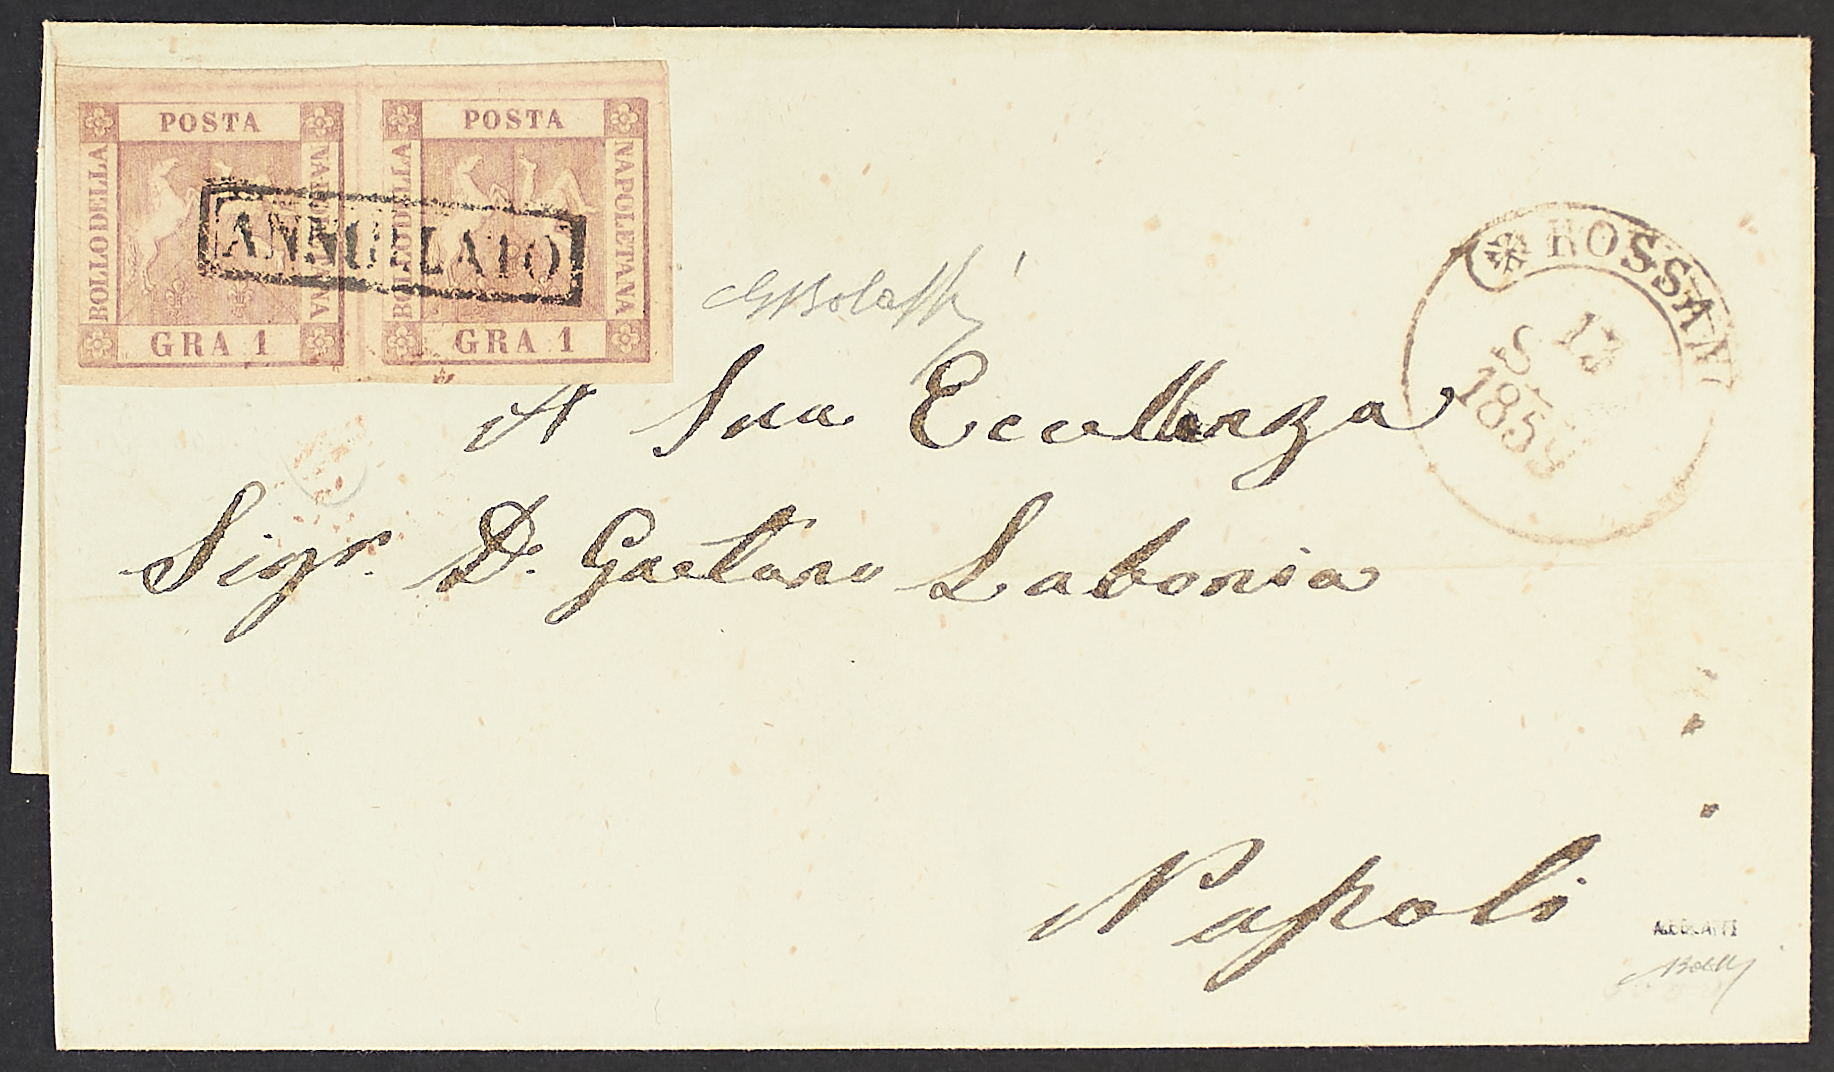 POSTA POSTA
BOLLODELLA NAPOLETANA BOLLODELLA NAPOLETANA
GRA 1 GRA 1
ANNULLATO
GBolaffi
ROSSAN
13
S.
1859
A Sua Eccellenza
Sigr. D. Gaetano Labonia
Napoli
A.BOLAFFI